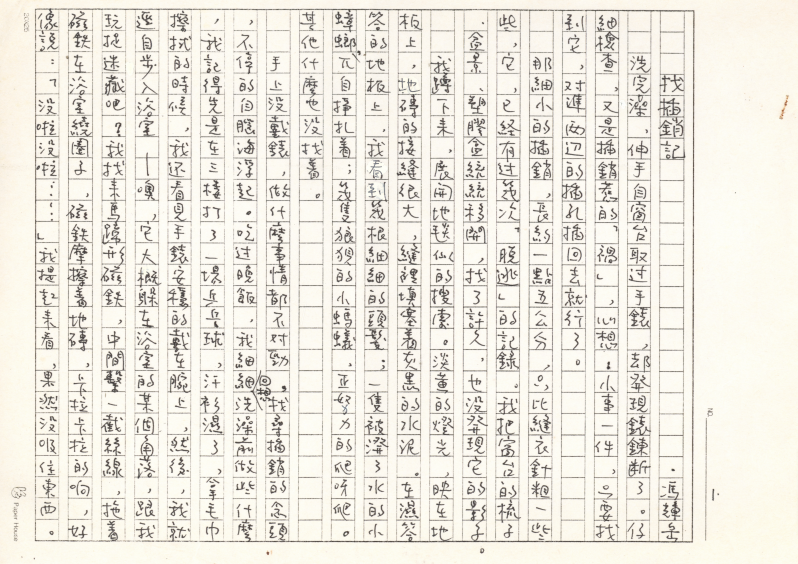 找插銷記
·馮輝岳
洗完澡，伸手自窗台取过手錶，却發現錶鍊断了。仔
細檢查，又是插銷惹的「禍」，心想：小事一件，只要找
到它，对準兩边的插孔插回去就行了。
那細小的插銷，長約一點五公分，比縫衣針粗一些
些，它，已经有过幾次「脫逃」的記録。我把窗台的梳子
、盆景、塑膠盒統統移開，找了許久，也没發現它的影子。
我蹲下来，展開地毯似的搜索。淡黄的燈光，映在地
板上，地磚的接縫很大，縫裡填塞着灰黑的水泥。在濕答
答的地板上，我看到幾根細細的頭髮；一隻被潑了水的小
蟑螂，兀自掙扎着；幾隻狼狽的小螞蟻，正努力的爬呀爬。
其他什麼也没找着。
手上没戴錶，做什麼事情都不对勁。找尋插銷的念頭
，不停的自腦海浮起。吃过晚飯，我細細回想洗澡前做些什麼
，我記得先是在三樓打了一場乒乓球，汗衫濕了，拿毛巾
擦拭的時候，我还看見手錶安穩的戴在腕上，然後，我就
逕自步入浴室──噢，它大概躲在浴室的某個角落，跟我
玩捉迷藏吧？我找来馬蹄形磁鉄，中間繫一截絲線，拖着
磁鉄在浴室繞圈子，磁鉄摩擦着地磚，卡拉卡拉的响，好
像說：「没啦没啦……」我提起来看，果然没吸住東西。
1
Paper House